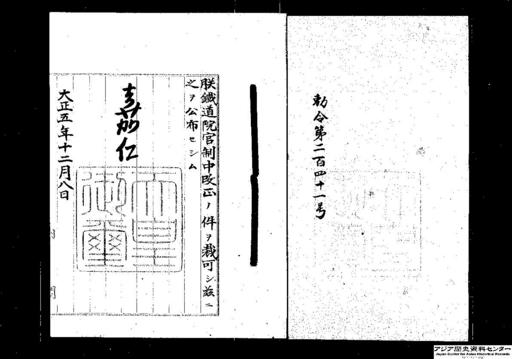 勅令第二百四十一号
朕鐵道院官制中改正ノ件ヲ裁可シ茲ニ
之ヲ公布セシム
嘉仁
天皇
御璽
大正五年十二月八日
アジア歴史資料センター
Japan Center for Asian Historical Records